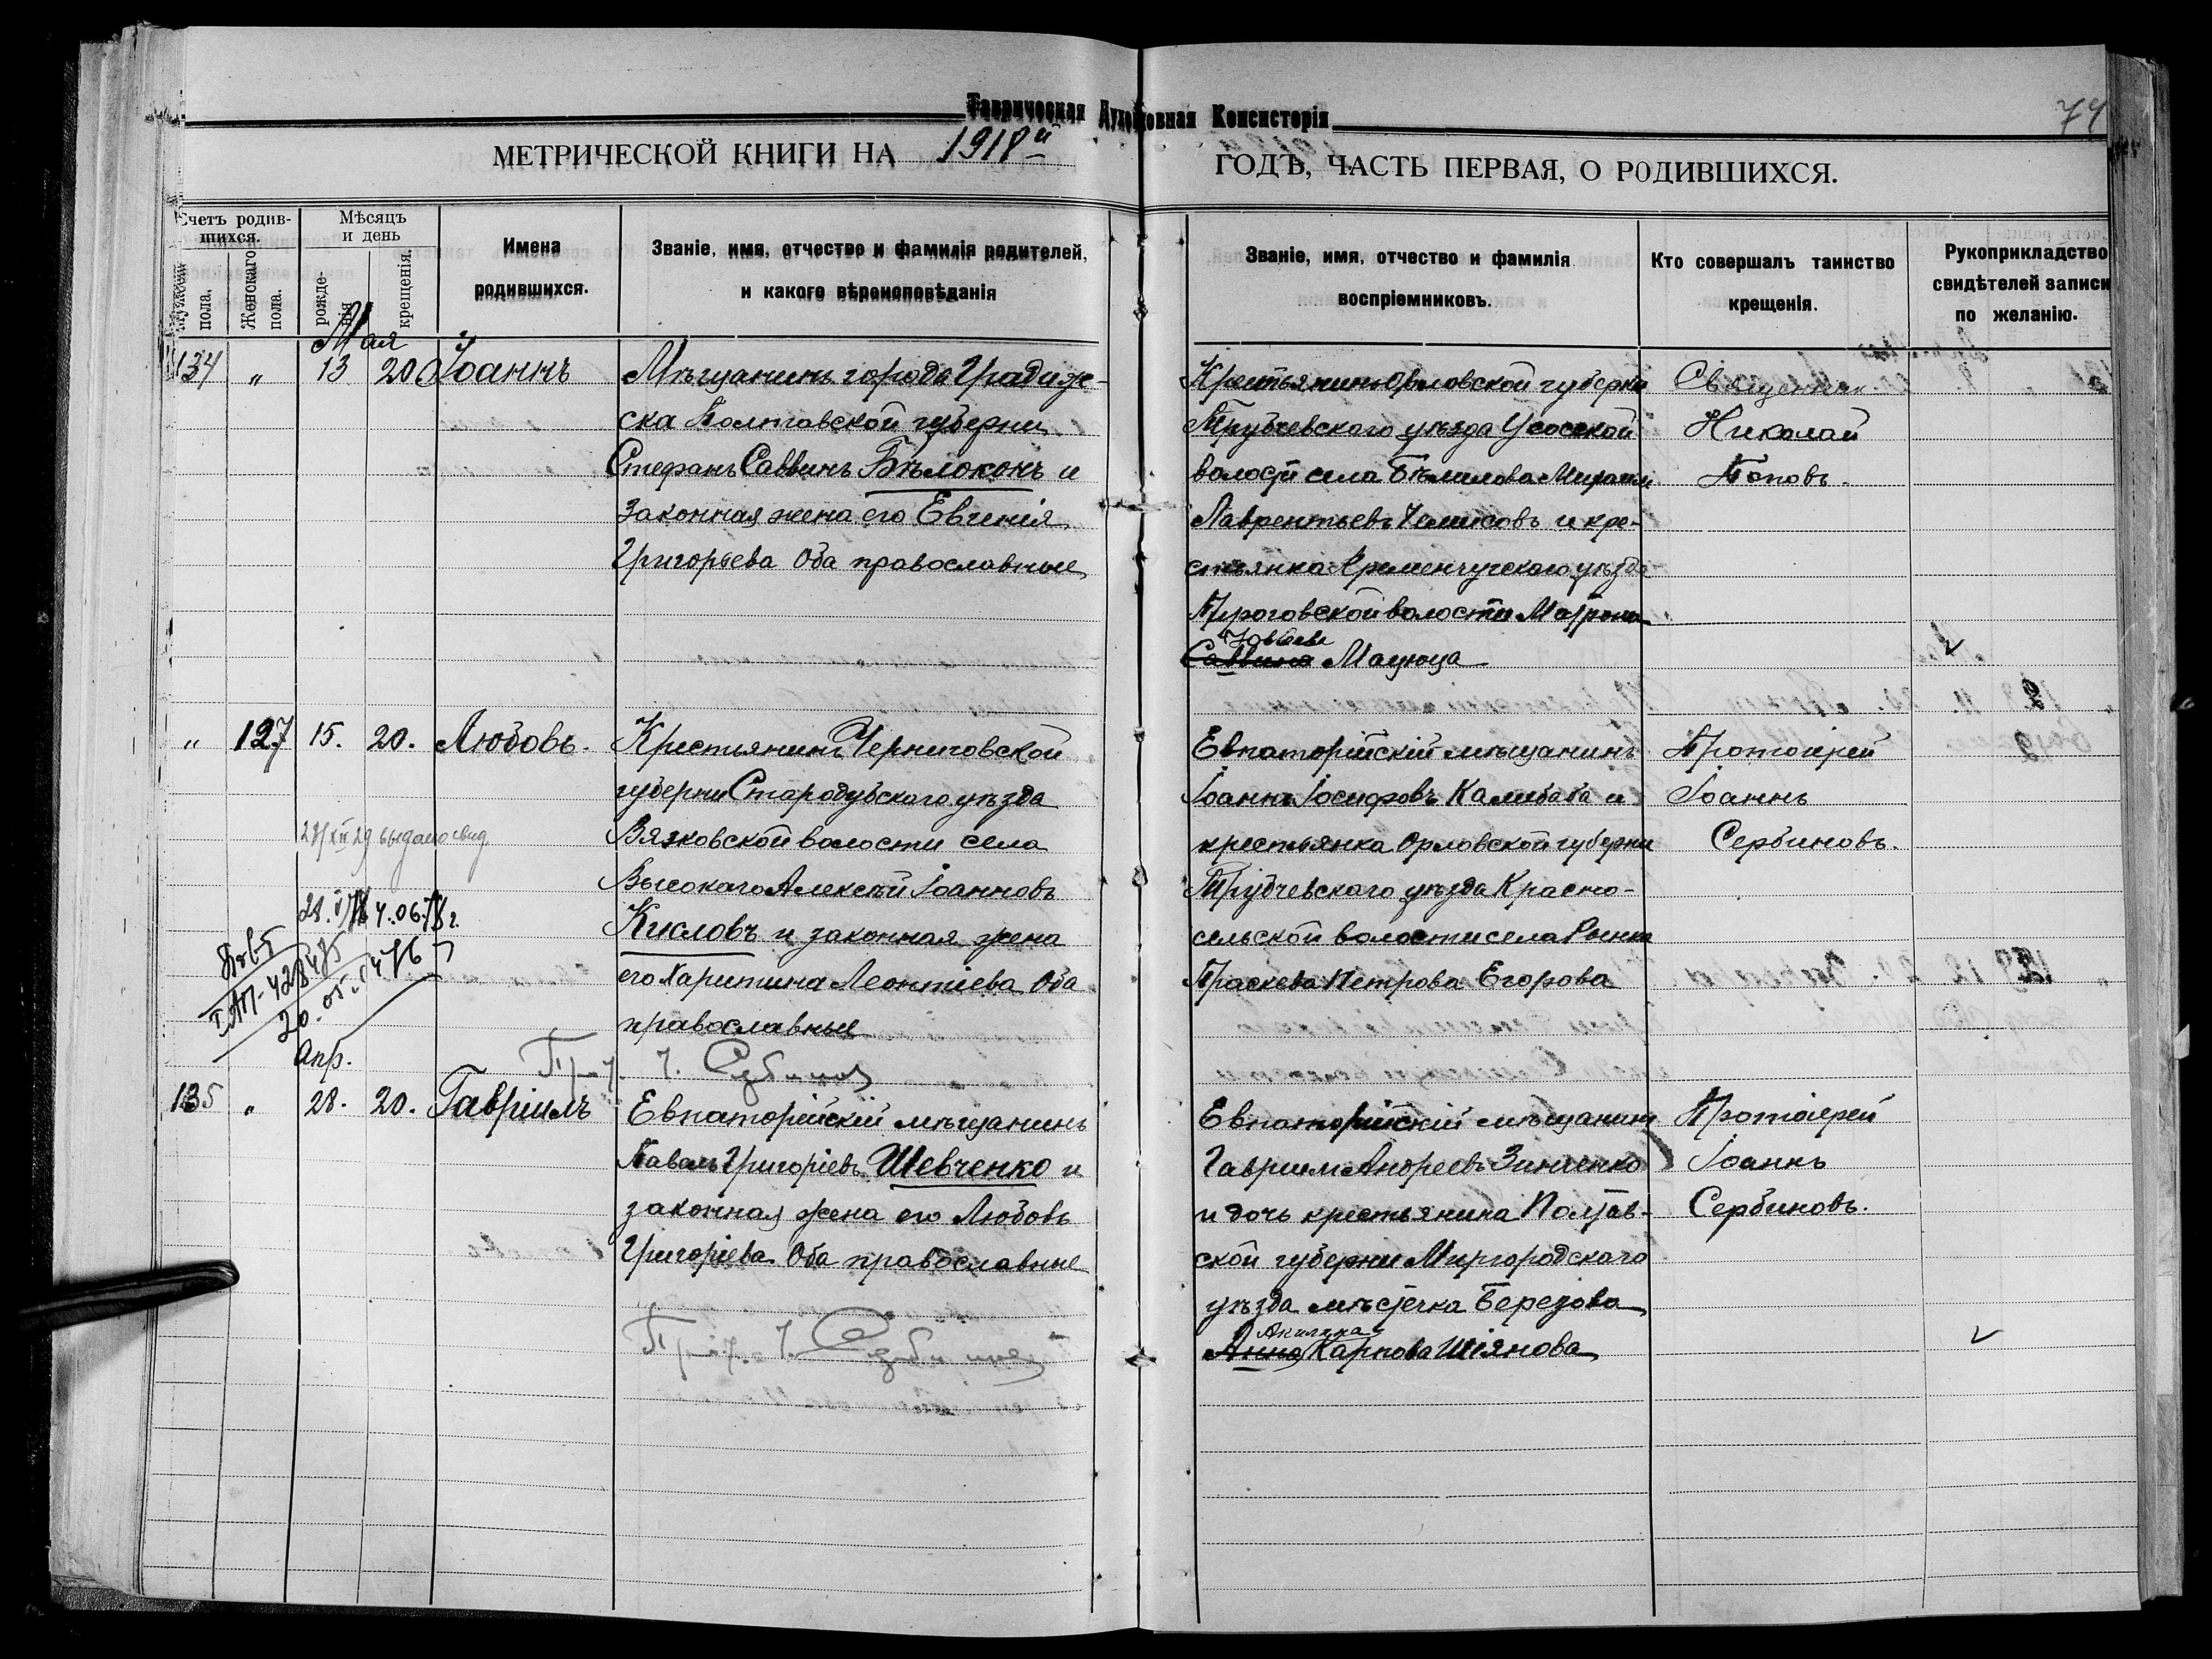 Таврическая Духовная Консисторія
74
МЕТРИЧЕСКОЙ КНИГИ НА 1918й ГОДЪ, ЧАСТЬ ПЕРВАЯ, О РОДИВШИХСЯ.
Счетъ родившихся.
Мужскаго пола.
Женскаго пола.
Мѣсяцъ и день
рожденія
крещенія.
Имена родившихся.
Званіе, имя, отчество и фамилія родителей,
и какого вѣроисповѣданія
Званіе, имя, отчество и фамилія
воспріемниковъ.
Кто совершалъ таинство
крещенія.
Рукоприкладство
свидѣтелей записи
по желанію.
Мая
134 " 13 20 Іоаннъ
Мѣщанинъ города Градиж-
ска Полтавской губерни
Стефанъ Саввинъ Бѣлоконь и
законная жена его Евгенія
Григорьева Оба православные
Крестьянинъ Орловской губерни
Трубчевскаго уѣзда Усосской
волости села
Лаврентьевъ и кре-
стьянка Кременчугскаго уѣзда
Пироговской волости Матрона
Саввина Мацюца
Священник
Николай
Поповъ.
" 127 15. 20. Любовь.
Крестьянинъ Черниговской
губерни Стародубскаго уѣзда
Вязковской волости села
Высокаго Алексѣй Іоанновъ
Кисловъ и законная жена
его Харитина Леонтіева Оба
православные
Евпаторійскій мѣщанинъ
Іоаннъ Іосифовъ Калибаба и
крестьянка Орловской губерни
Трубчевскаго уѣзда Красно-
сельской волости села
Праскева Петрова Егорова
Протоіерей
Іоаннъ
Сербиновъ.
выдано свид.
Прот. І. Сербинов
Апр.
135 " 28. 20. Гавріилъ
Евпаторійскій мѣщанинъ
Павелъ Григоріевъ Шевченко и
законная жена его Любовь
Григоріева Оба православные
Прот. І. Сербинов
Евпаторійскій мѣщанинъ
Гавріилъ Андреевъ Зинченко
и дочь крестьянина Полтав-
ской губерни Миргородскаго
уѣзда мѣстечка Березова
Акилина
Анна Карпова Шіянова
Протоіерей
Іоаннъ
Сербиновъ.